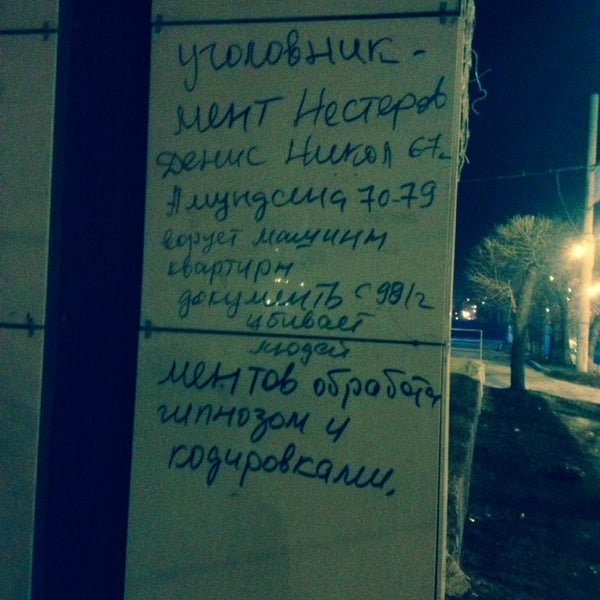 уголовник -
мент Нестеров
Денис Никол 67г
Амундсена 70-79
ворует машины
квартиры
документы с 98/г
убивает
людей
ментов обработал
гипнозом и
кодировками.